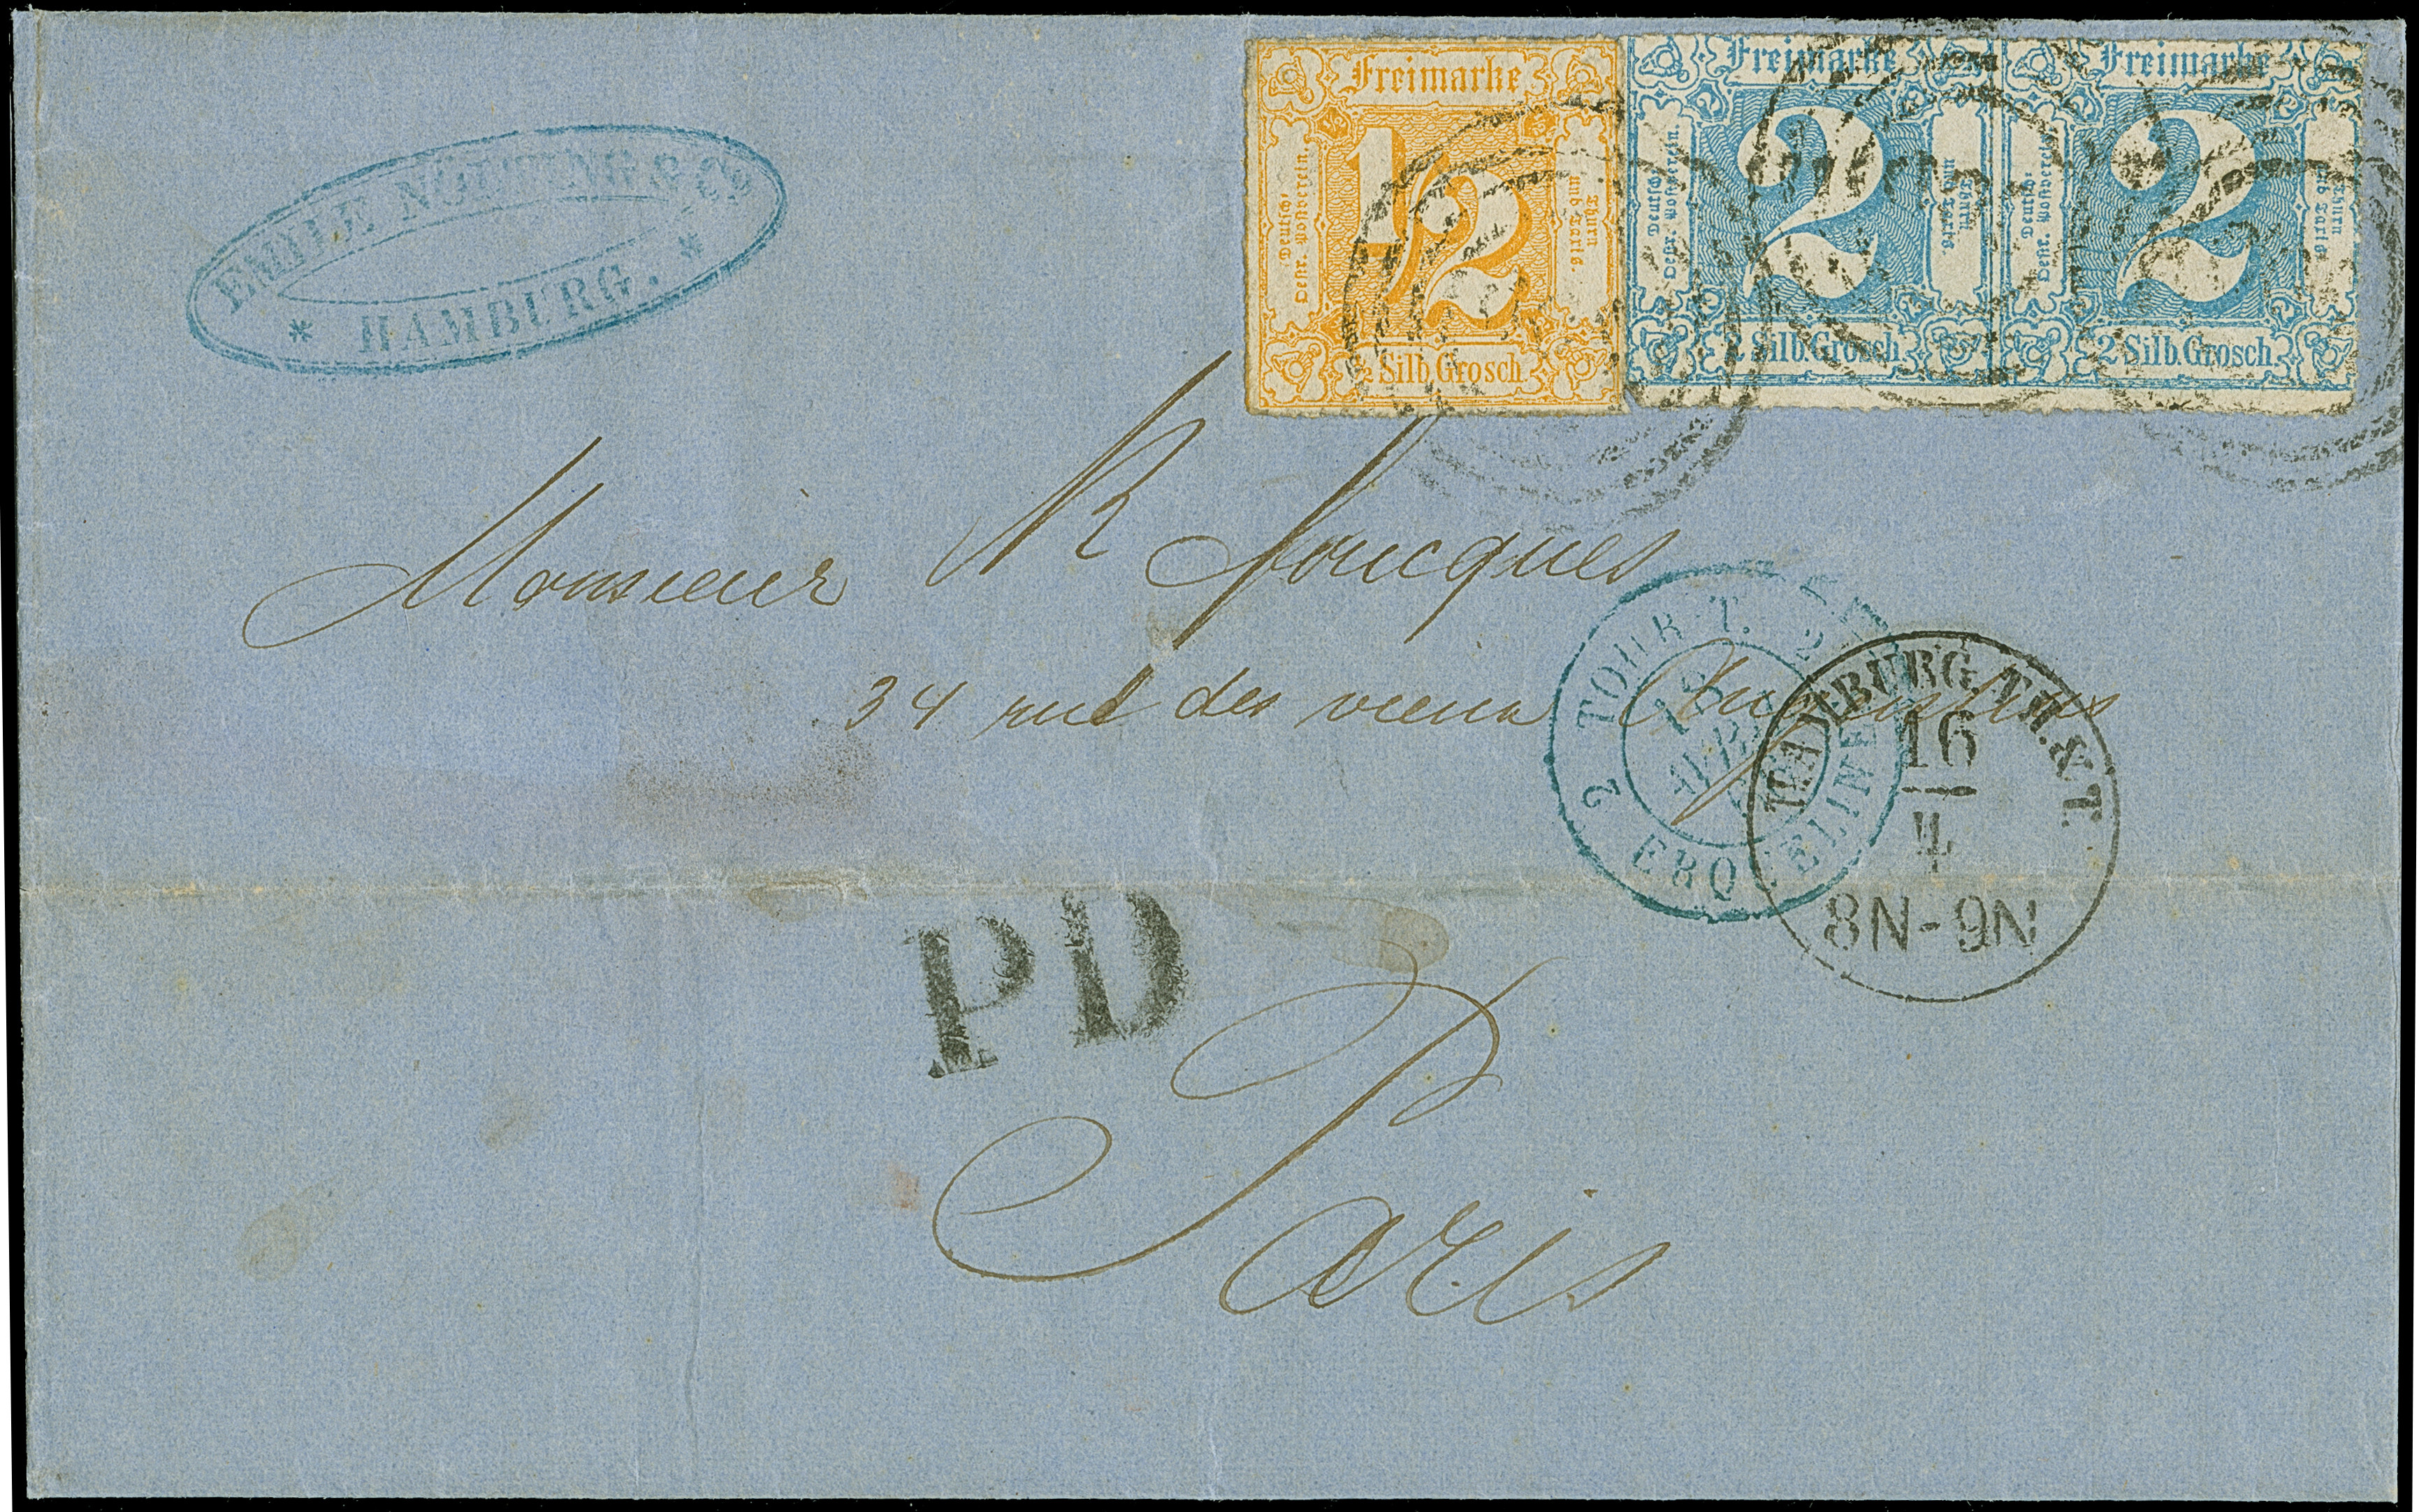 EMILE NÖLTING & Co
* HAMBURG. *
Freimarke
Deutsch-Oestr. Postverein.
1/2
Thurn und Taxis.
1/2 Silb. Grosch.
Freimarke
Deutsch-Oestr. Postverein.
2
Thurn und Taxis.
2 Silb. Grosch.
Freimarke
Deutsch-Oestr. Postverein.
2
Thurn und Taxis.
2 Silb. Grosch.
Monsieur R Joucques
34 rue des vieux Augustins
2 TOUR-T.
18
AVRIL
ERQUELINES 2
HAMBURG TH. & T.
16
4
8N-9N
PD
Paris